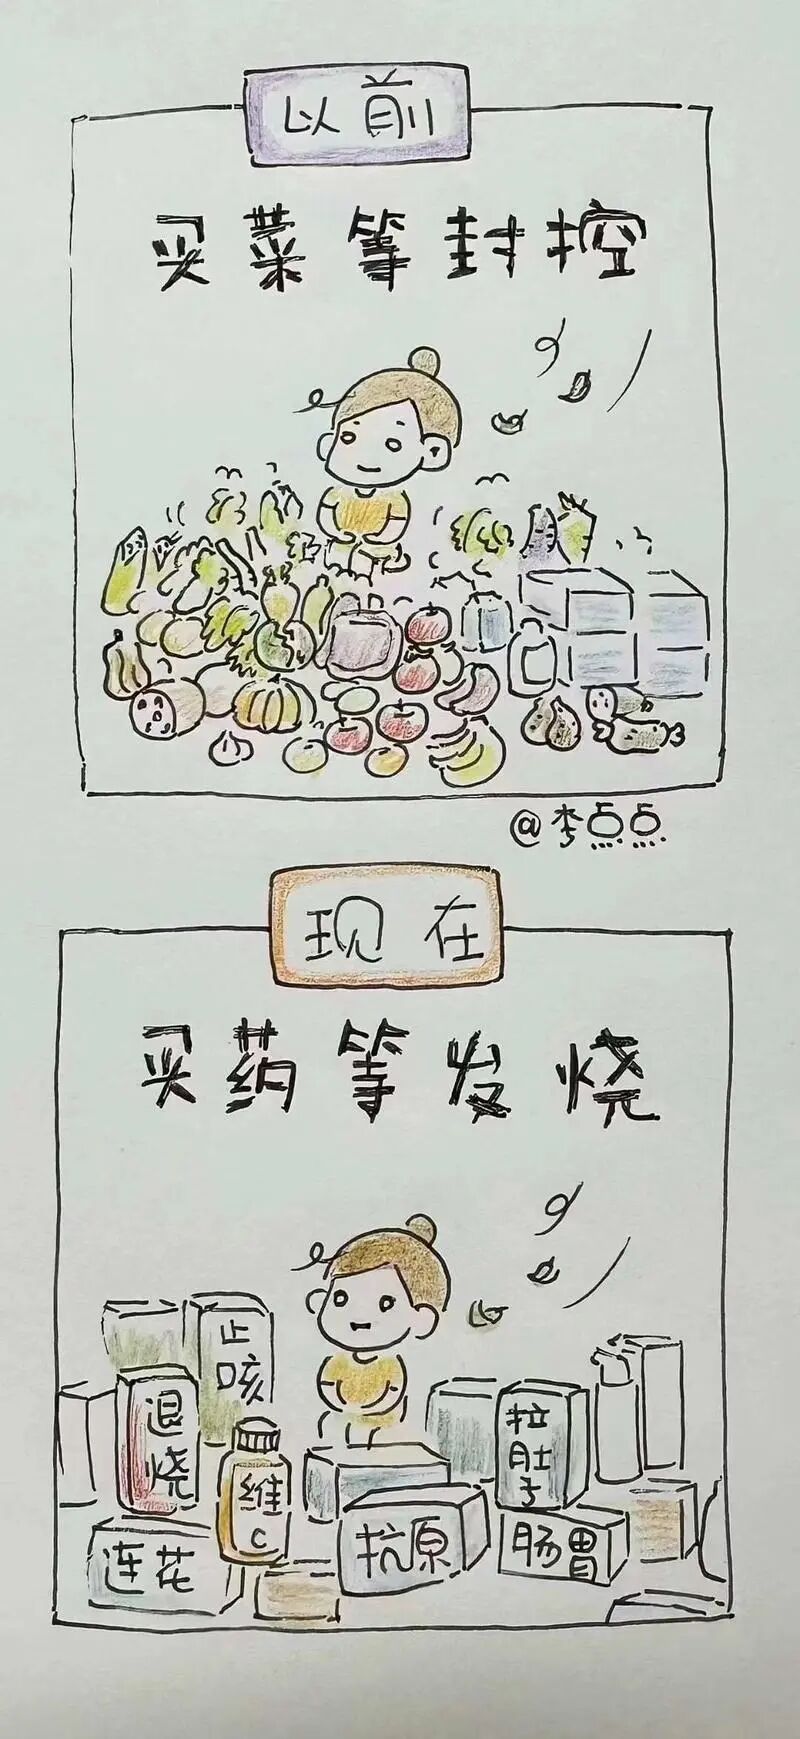 以前
买菜等封控
@李点点
现在
买药等发烧
止咳
退烧
维C
连花
抗原
拉肚子
肠胃